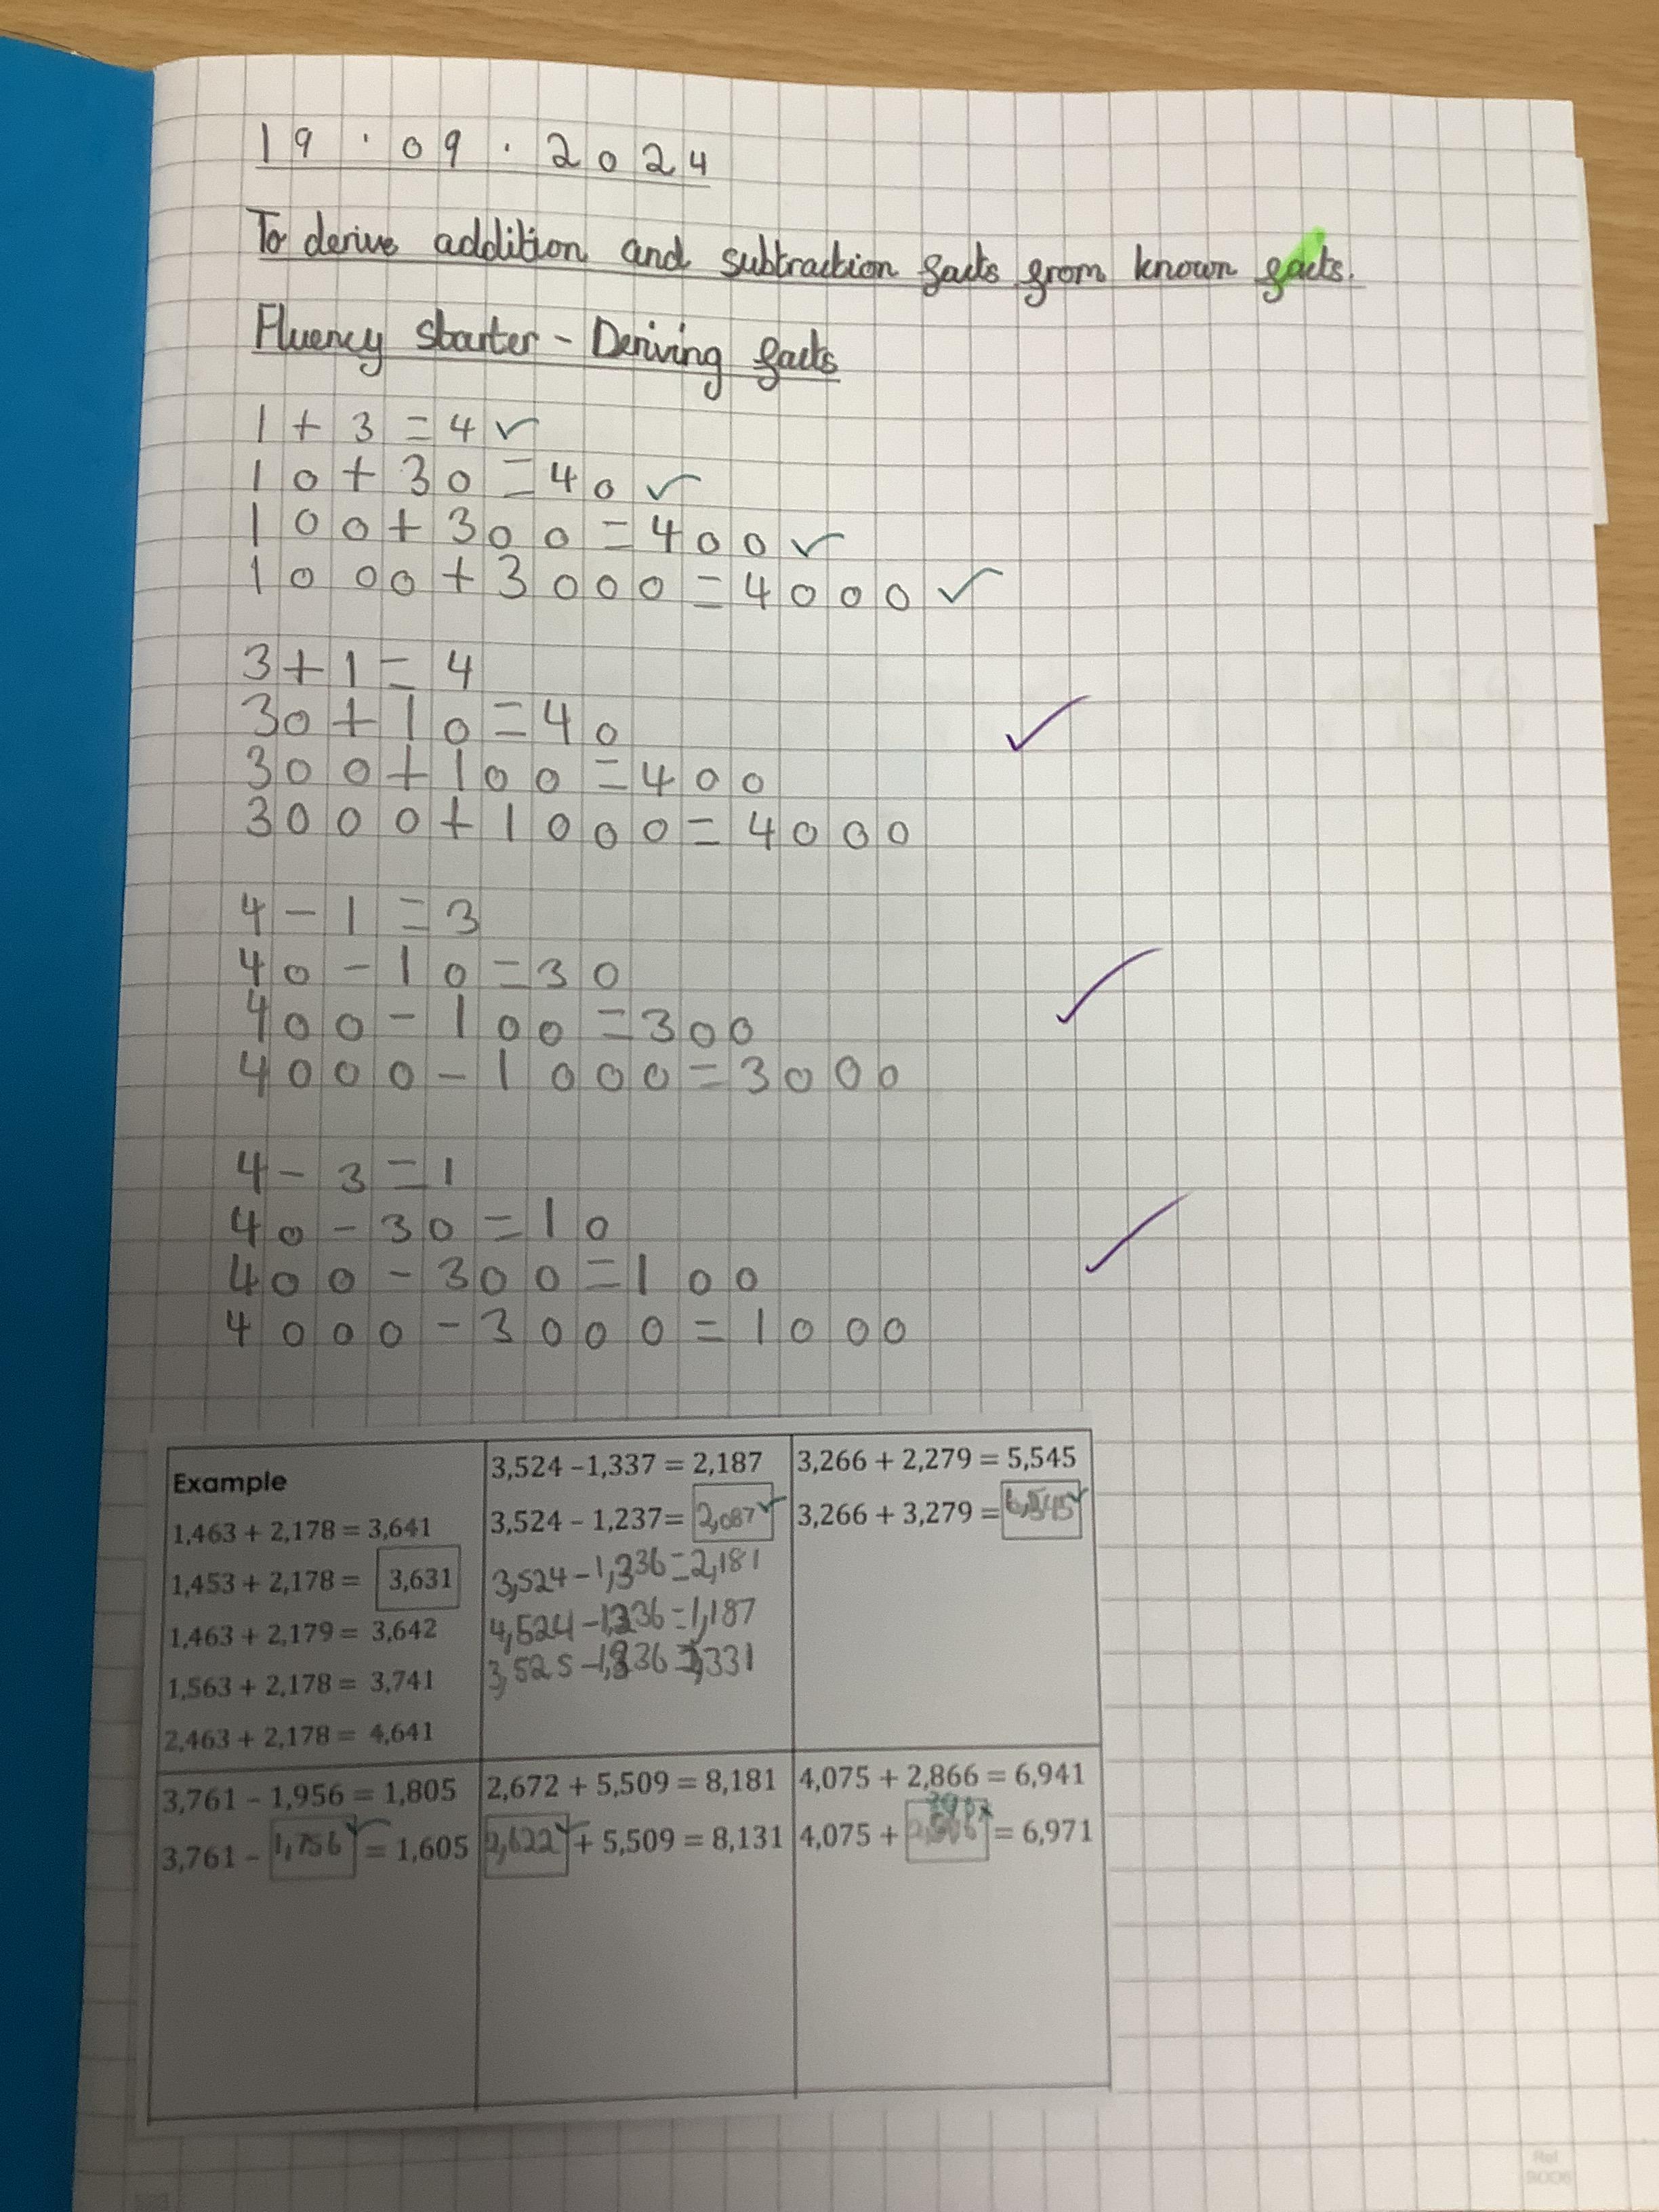 19.09.2024
To derive addition and subtraction facts from known facts.
Fluency starter - Deriving facts
1+3=4
10+30=40
100+300=400
1000+3000=4000
3+1=4
30+10=40
300+100=400
3000+1000=4000
4-1=3
40-10=30
400-100=300
4000-1000=3000
4-3=1
40-30=10
400-300=100
4000-3000=1000
Example
1,463 + 2,178 = 3,641
1,453 + 2,178 = 3,631
1,463 + 2,179 = 3,642
1,563 + 2,178 = 3,741
2,463 + 2,178 = 4,641
3,524 – 1,337 = 2,187
3,524 – 1,237= 2,087
3,524-1,336=2,181
4,524 =1,187
3,525
3,266 + 2,279 = 5,545
3,266 + 3,279 = 6,545
3,761 – 1,956 = 1,805
3,761 – 1,756 = 1,605
2,672 + 5,509 = 8,181
2,622 + 5,509 = 8,131
4,075 + 2,866 = 6,941
4,075 + = 6,971